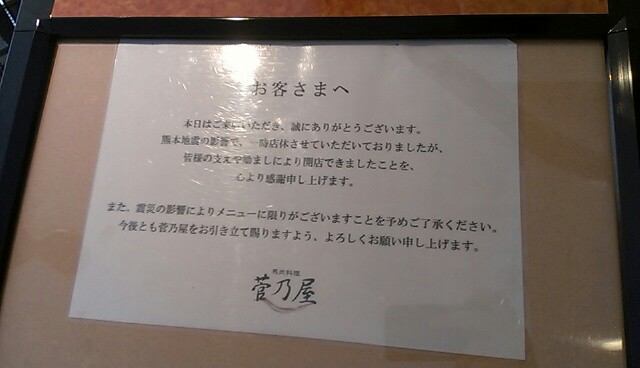 お客さまへ
本日はご来店いただき、誠にありがとうございます。
熊本地震の影響で、一時店休させていただいておりましたが、
皆様の支えや励ましにより開店できましたことを、
心より感謝申し上げます。
また、震災の影響によりメニューに限りがございますことを予めご了承ください。
今後とも菅乃屋をお引き立て賜りますよう、よろしくお願い申し上げます。
馬肉料理
菅乃屋